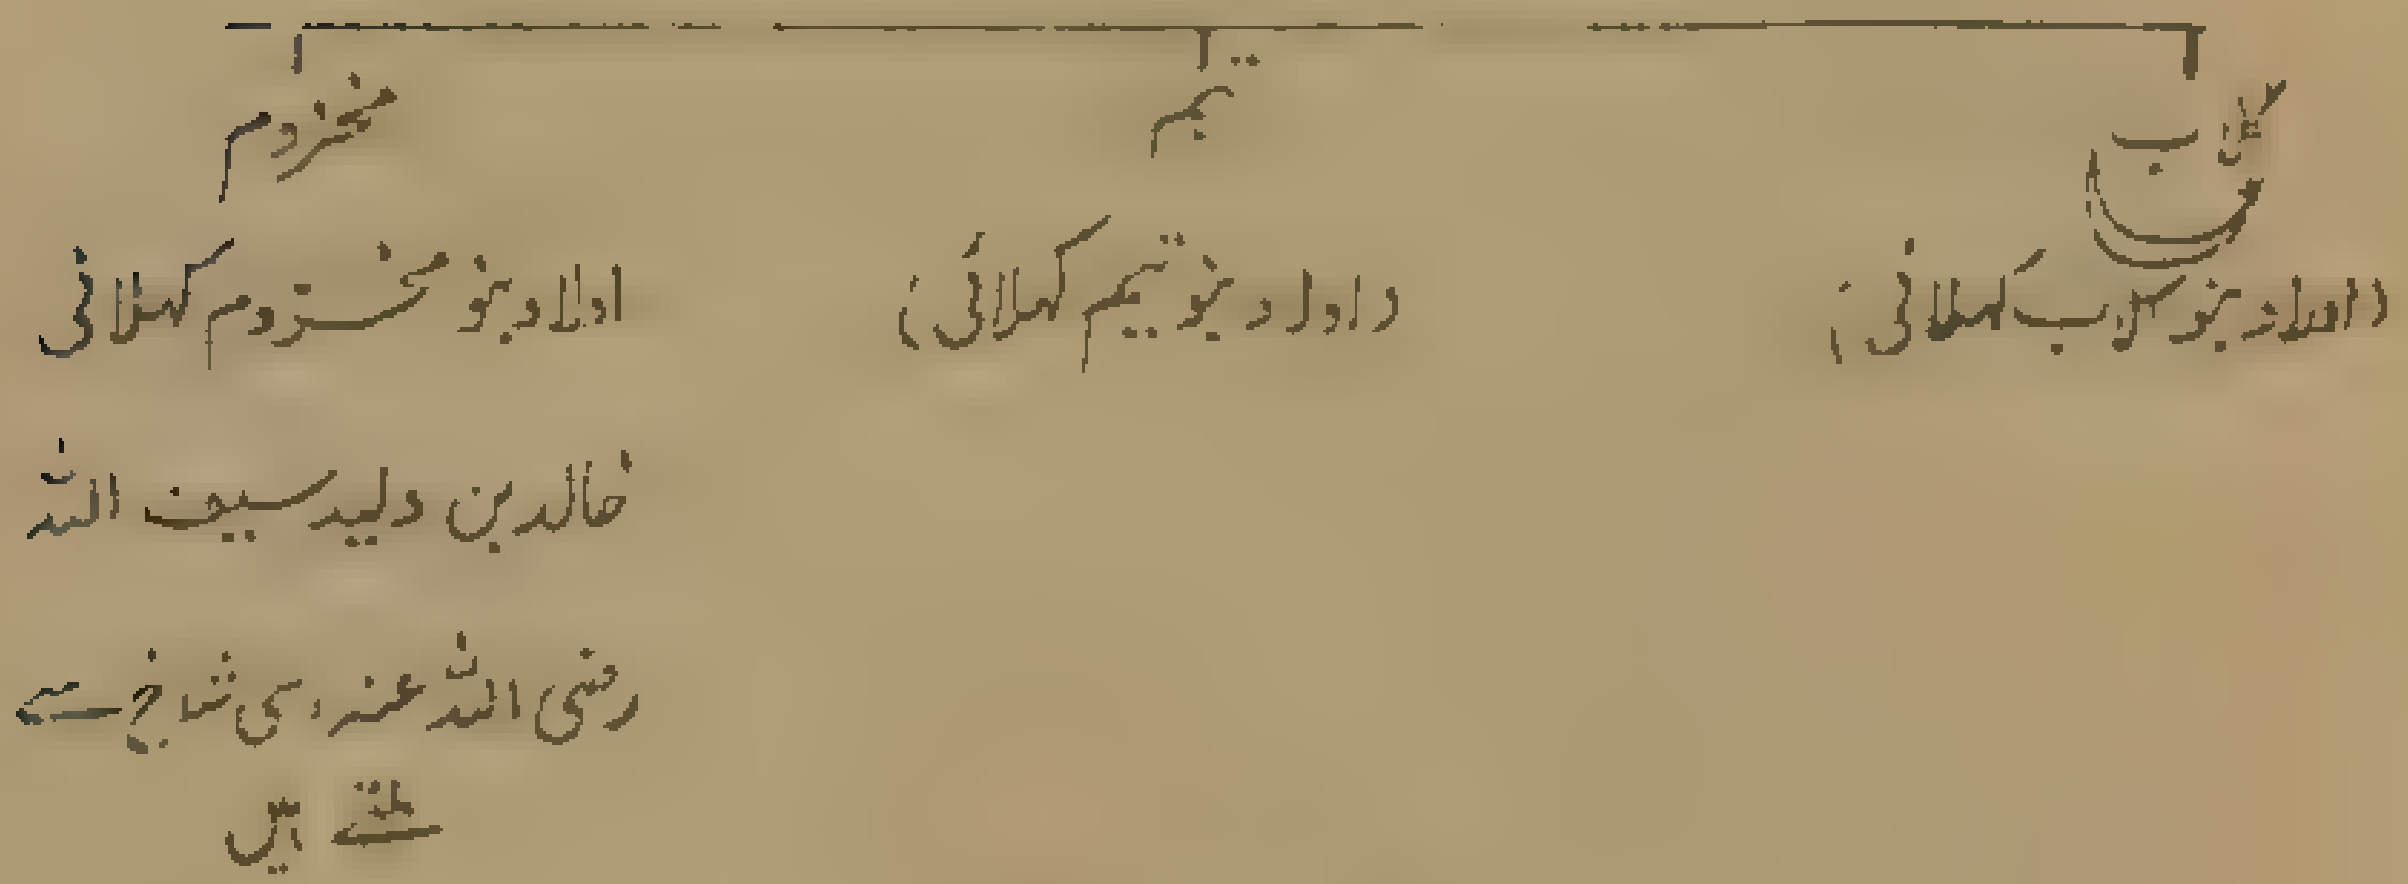 کلاب تیم مخزوم
(اولاد بنو کلاب کہلائی) (اولاد بنو تیم کہلائی) اولاد بنو مخزوم کہلائی
خالد بن ولید سیف اللہ
رضی اللہ عنہ اسی شاخ سے
ملتے ہیں